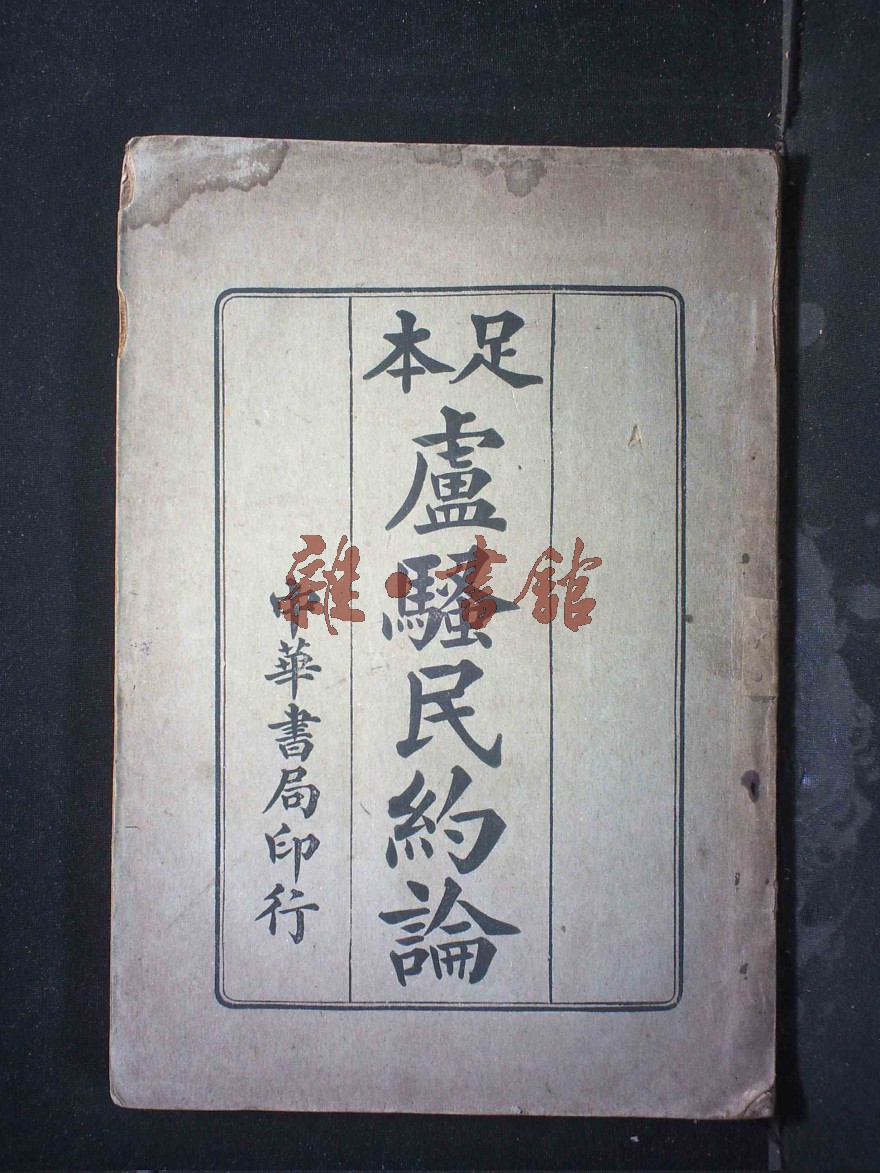 足本
盧騷民約論
中華書局印行
雜·書館